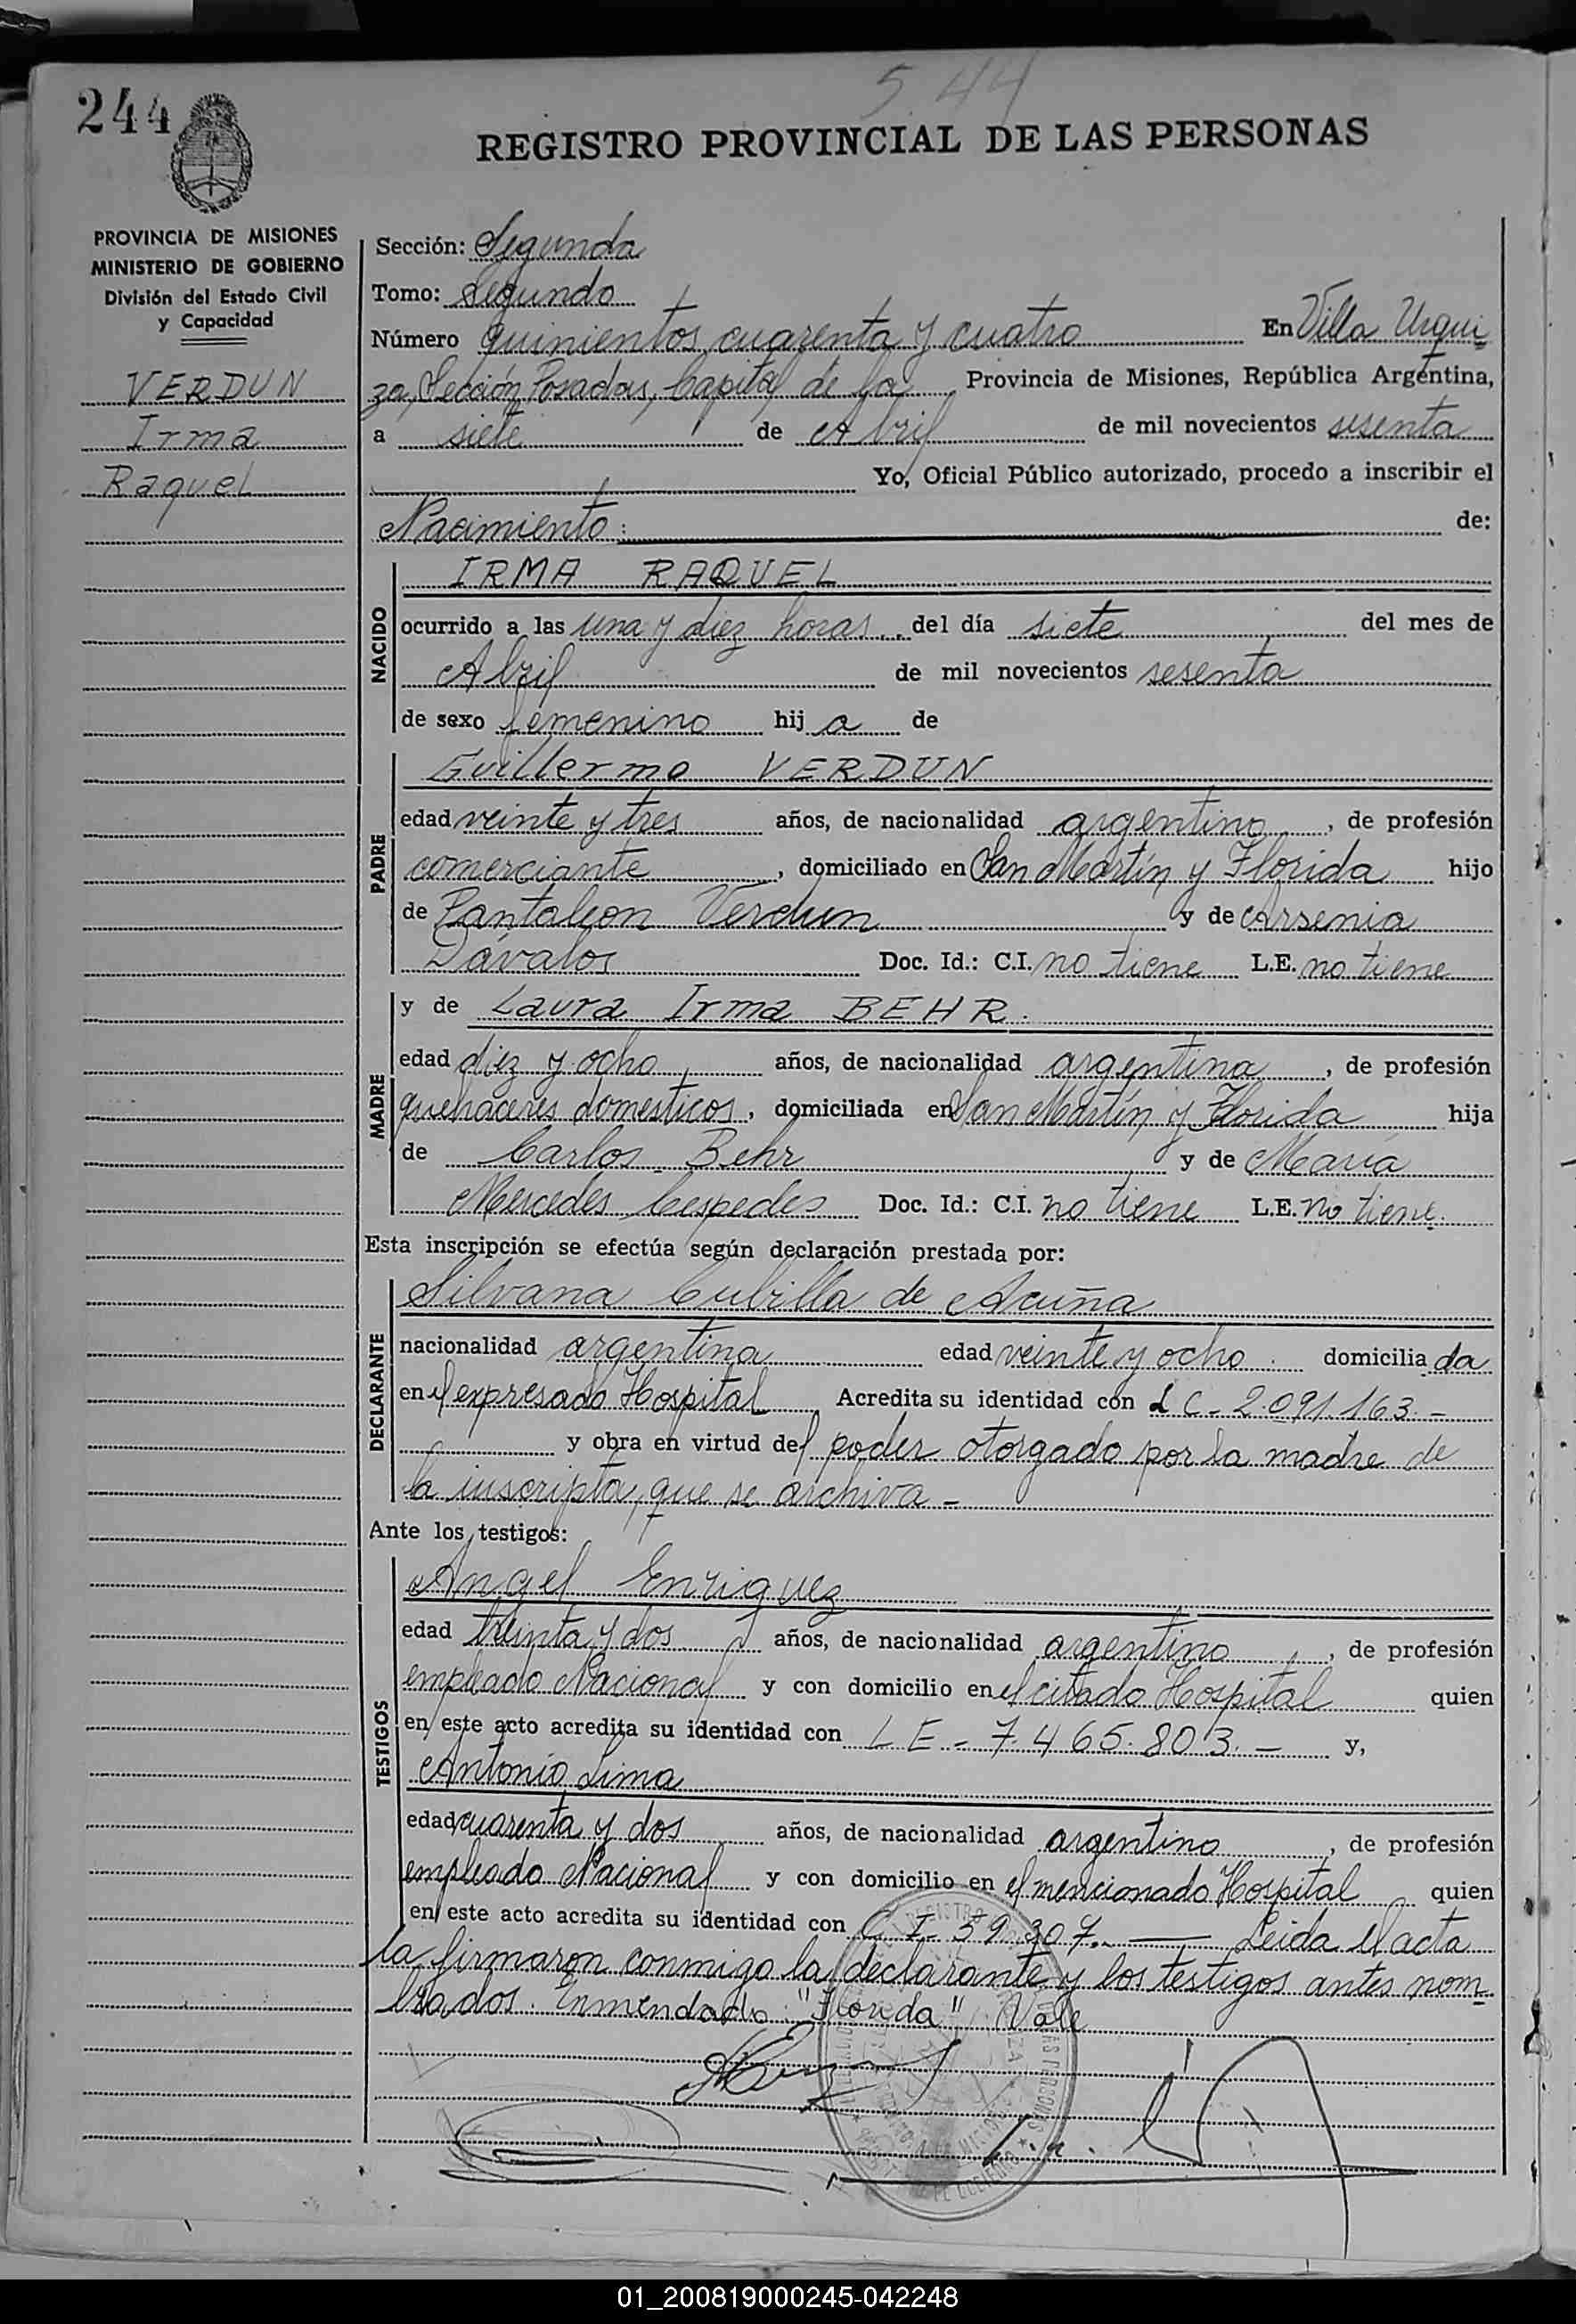 544
244
REGISTRO PROVINCIAL DE LAS PERSONAS
PROVINCIA DE MISIONES
MINISTERIO DE GOBIERNO
División del Estado Civil
y Capacidad
VERDUN
Irma
Raquel
Sección: Segunda
Tomo: Segundo
Número quinientos cuarenta y cuatro En Villa Urqui
za, Sección Posadas, Capital de la Provincia de Misiones, República Argentina,
a siete de Abril de mil novecientos sesenta
Yo, Oficial Público autorizado, procedo a inscribir el
Nacimiento: de:
NACIDO
IRMA RAQUEL
ocurrido a las una y diez horas, del día siete del mes de
Abril de mil novecientos sesenta
de sexo femenino hij a de
PADRE
Guillermo VERDUN
edad veinte y tres años, de nacionalidad argentino, de profesión
comerciante, domiciliado en San Martín y Florida hijo
de Pantaleon Verdun y de Arsenia
Dávalos Doc. Id.: C.I. no tiene L.E. no tiene
MADRE
y de Laura Irma BEHR.
edad diez y ocho años, de nacionalidad argentina, de profesión
quehaceres domesticos, domiciliada en San Martín y Florida hija
de Carlos Behr y de María
Mercedes Cespedes Doc. Id.: C.I. no tiene L.E. no tiene.
Esta inscripción se efectúa según declaración prestada por:
DECLARANTE
Silvana Cubilla de Acuña
nacionalidad argentina edad veinte y ocho domicilia da
en el expresado Hospital Acredita su identidad con L C - 2.091.163 -
y obra en virtud del poder otorgado por la madre de
la inscripta, que se archiva -
Ante los testigos:
TESTIGOS
Angel Enriquez
edad treinta y dos años, de nacionalidad argentino, de profesión
empleado Nacional y con domicilio en el citado Hospital quien
en este acto acredita su identidad con L E - 7.465.803. - y,
Antonio Lima
edad cuarenta y dos años, de nacionalidad argentino, de profesión
empleado Nacional y con domicilio en el mencionado Hospital quien
en este acto acredita su identidad con C I - 59.307. - Leida el acta
la firmaron conmigo la declarante y los testigos antes nom
brados. Enmendado: "Florida" Vale
01_200819000245-042248